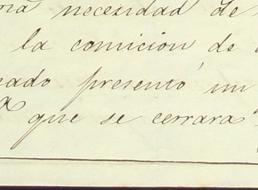 necesidad de
la comicion de
presentó un
que se cerrara